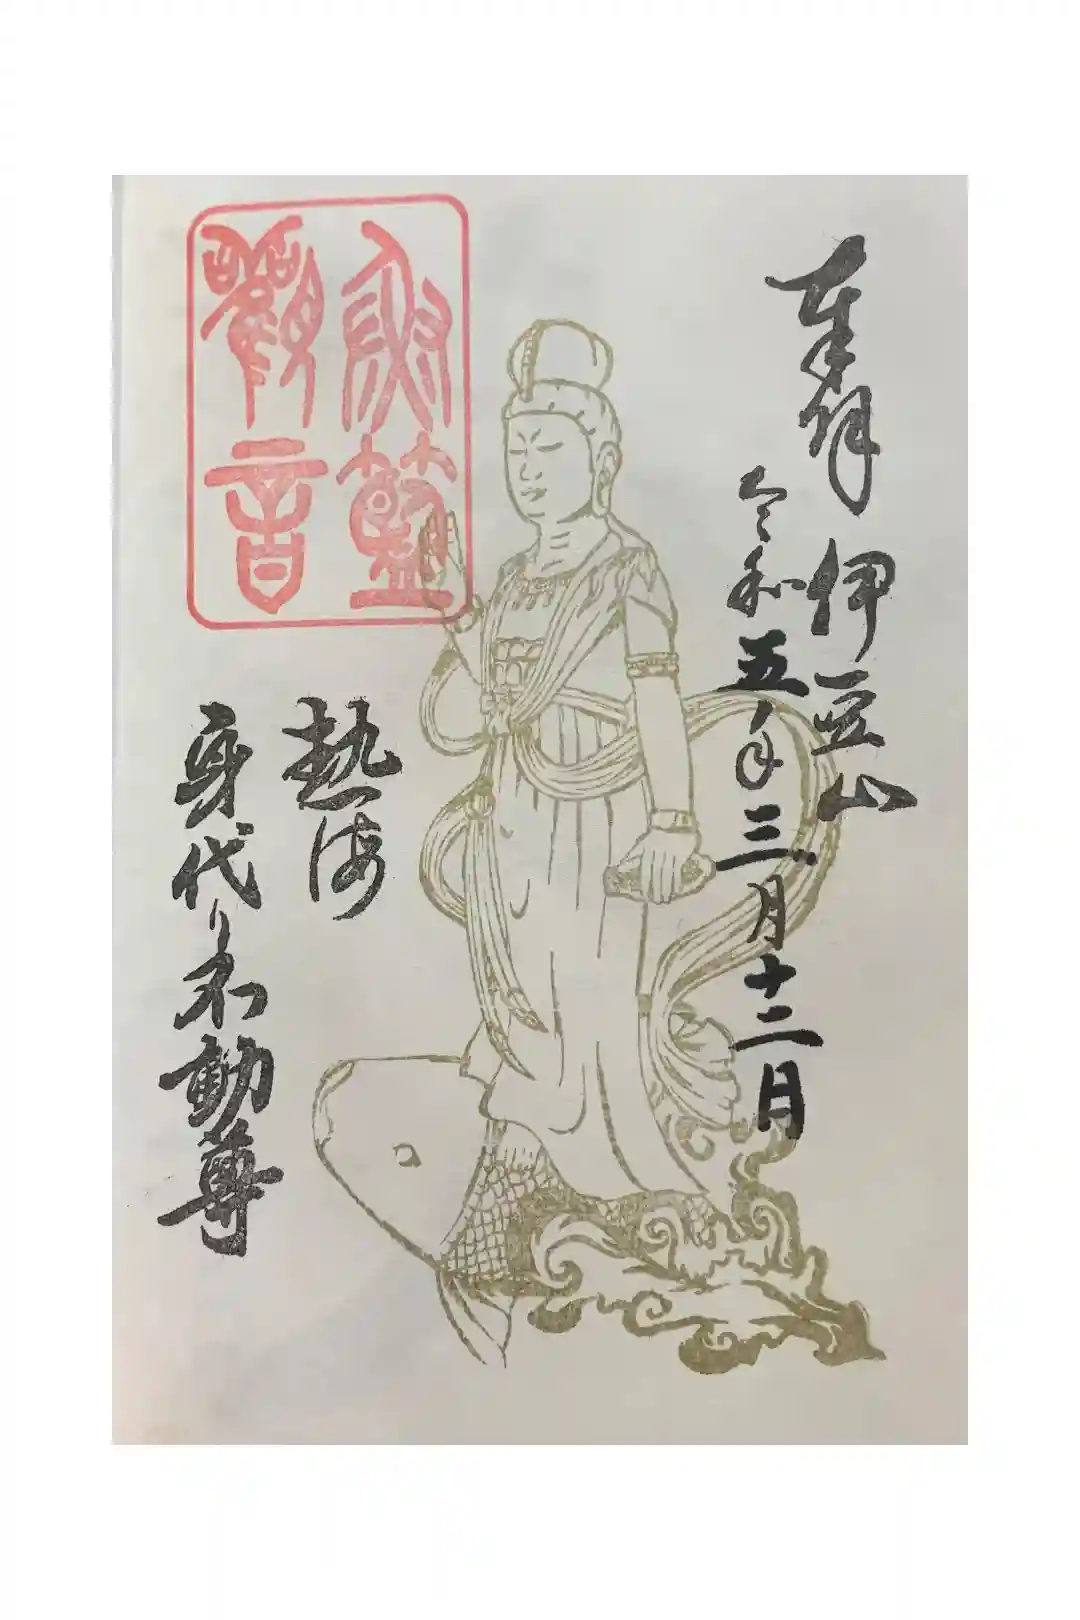 奉拝 伊豆山
令和五年三月十二日
魚籃
觀音
熱海
身代り不動尊